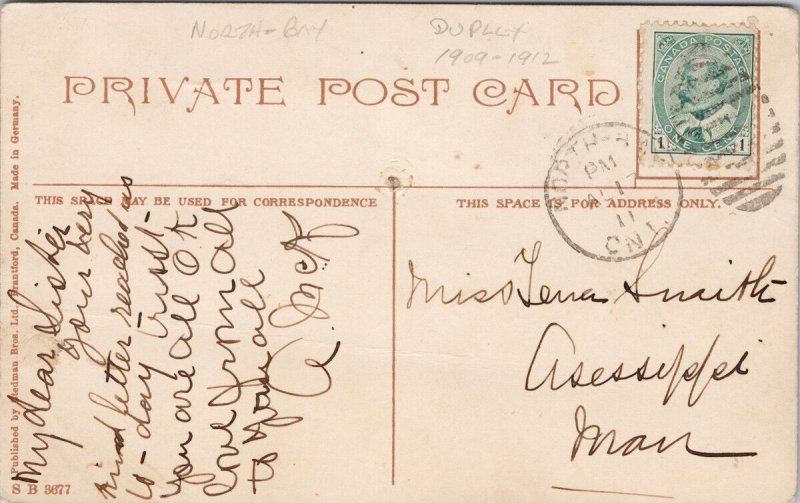 NORTH-BAY
DUPLEX
1909-1912
PRIVATE POST CARD
CANADA POSTAGE
1 ONE CENT 1
NORTH-BAY
PM
17
11
ONT.
THIS SPACE MAY BE USED FOR CORRESPONDENCE
THIS SPACE IS FOR ADDRESS ONLY.
Published by Stedman Bros. Ltd., Brantford, Canada. Made in Germany.
S B 3677
My dear Sister
your very
kind letter reached us
to-day trust-
you are all O.K
love from all
to you all
A. McK
Miss Lena Smith
Asessippi
Man